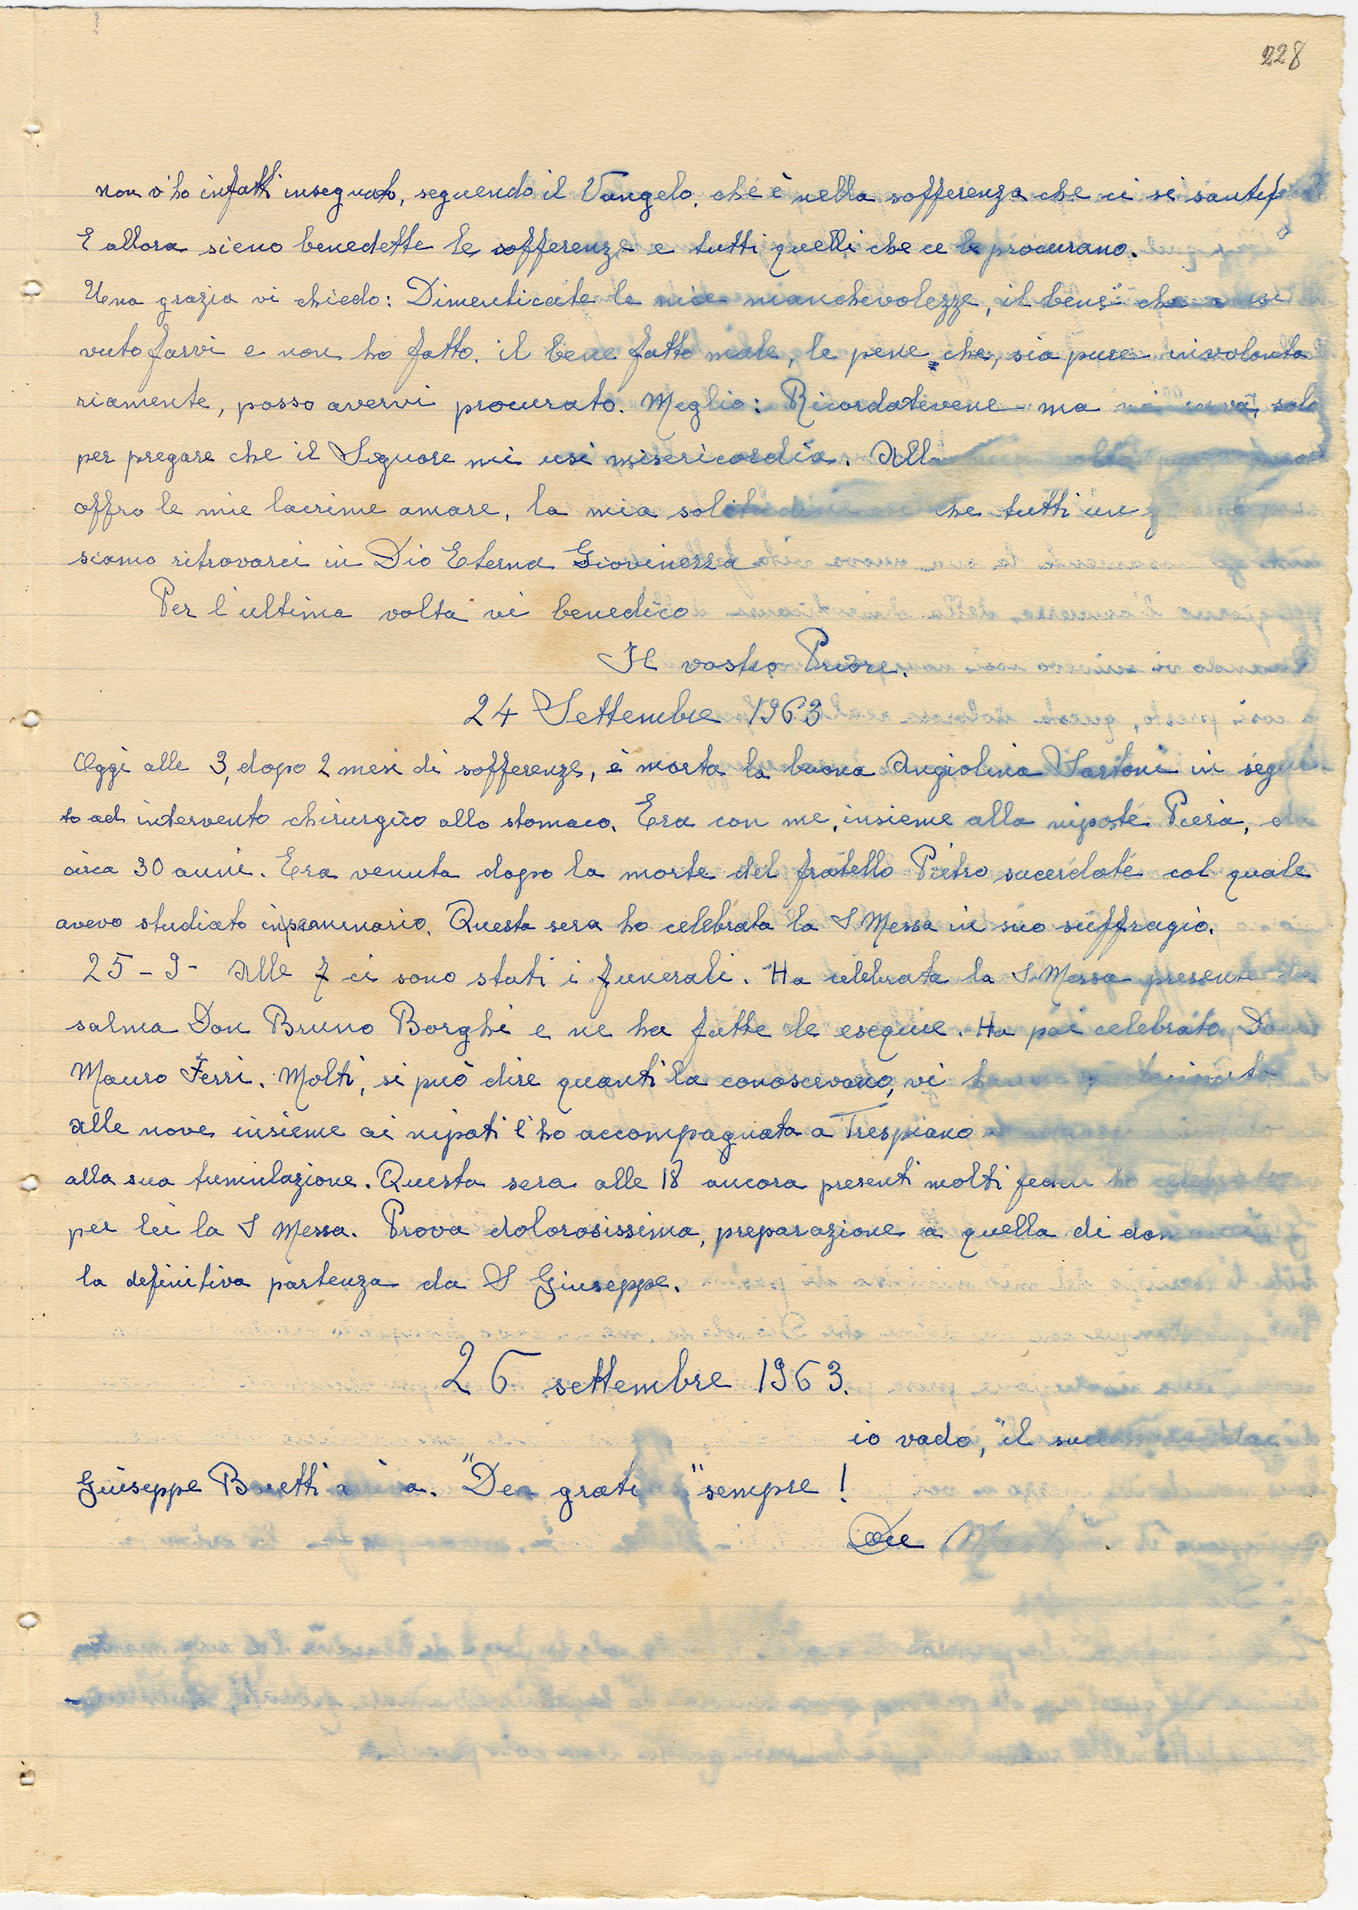 228
non v'ho infatti insegnato, seguendo il Vangelo, che è nella sofferenza che ci si
E allora sieno benedette le sofferenze e tutti quelli che ce le procurano.
Una grazia vi chiedo: Dimenticate le mie manchevolezze, il bene che
vuto farvi e non ho fatto, il bene fatto male, le pene che, sia pure involonta
riamente, posso avervi procurato. Meglio: Ricordatevene ma solo
per pregare che il Signore mi usi misericordia. Alla
offro le mie lacrime amare, la mia che tutti un
siamo ritrovarci in Dio Eterna Giovinezza
Per l'ultima volta vi benedico
Il vostro Priore.
24 Settembre 1963
Oggi alle 3, dopo 2 mesi di sofferenze, è morta la buona Angiolina Sartoni in segui
to ad intervento chirurgico allo stomaco. Era con me, insieme alla nipote Piera, da
circa 30 anni. Era venuta dopo la morte del fratello Pietro sacerdote col quale
avevo studiato in seminario. Questa sera ho celebrata la S Messa in suo suffragio.
25-9- Alle 7 ci sono stati i funerali. Ha celebrata la S Messa presente la
salma Don Bruno Borghi e ne ha fatte le esequie. Ha poi celebrato Don
Mauro Ferri. Molti, si può dire quanti la conoscevano, vi
Alle nove insieme ai nipoti l'ho accompagnata a Trespiano
alla sua tumulazione. Questa sera alle 18 ancora presenti molti
per lei la S Messa. Prova dolorosissima, preparazione a quella di
la definitiva partenza da S Giuseppe.
26 settembre 1963.
io vado, il
Giuseppe "Deo" sempre!